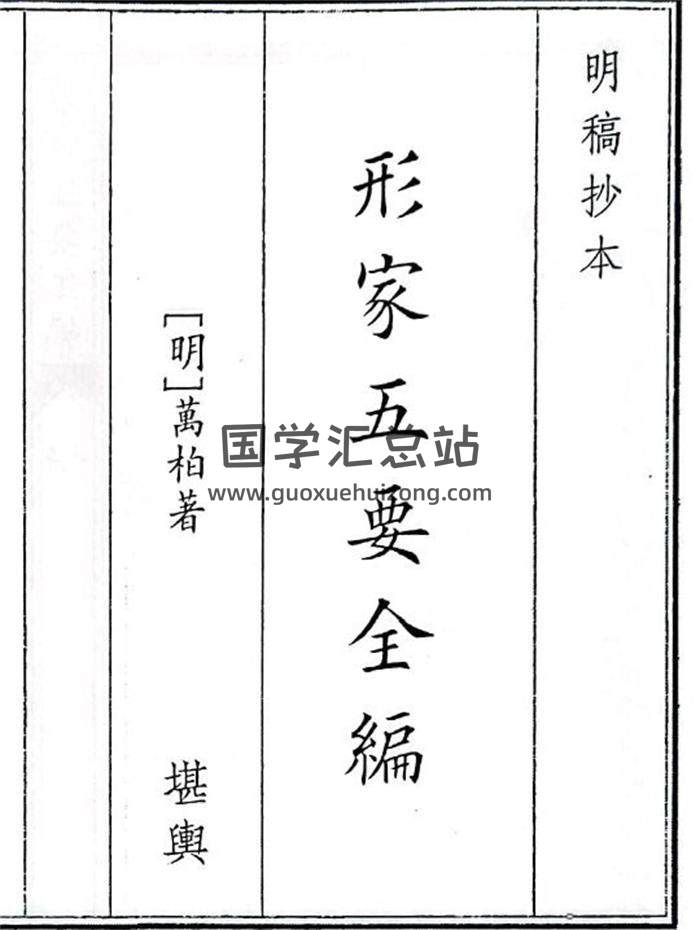 明稿抄本
形家五要全編
[明]萬柏著
堪輿
国学汇总站
www.guoxuehuizong.com